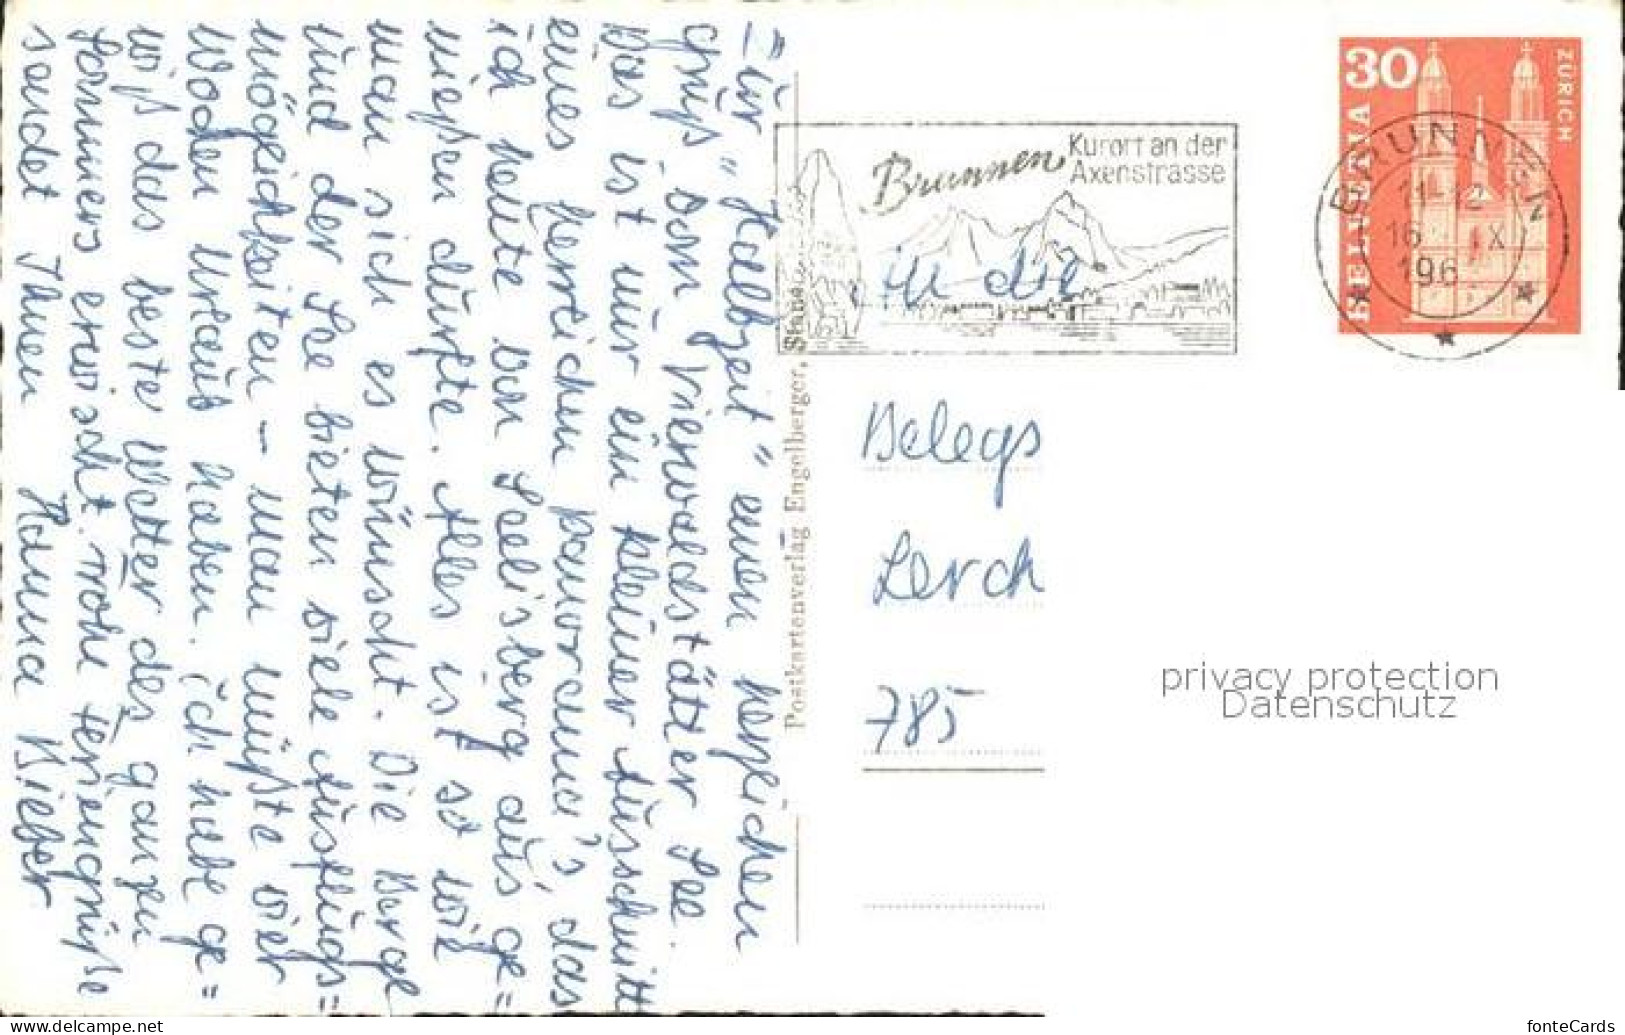 Zur "Halbzeit" einen herzlichen
Gruß vom Vierwaldstätter See.
Das ist nur ein kleiner Ausschnitt
eines herrlichen Panorama's, das
ich heute von Seelisberg aus ge=
nießen durfte. Alles ist so wie
man sich es wünscht. Die Berge
und der See bieten viele Ausflugs=
möglichkeiten – man müßte vier
Wochen Urlaub haben. Ich habe ge=
wiß das beste Wetter des ganzen
Sommers erwischt. Frohe Feriengrüße
sendet Ihnen Hanna Bieber
Postkartenverlag Engelberger, Stans
Brunnen Kurort an der
Axenstrasse
30
HELVETIA
ZÜRICH
BRUNNEN
11-12
16 X
196
in die
Belegs
Lerch
785
privacy protection
Datenschutz
www.delcampe.net
fonteCards